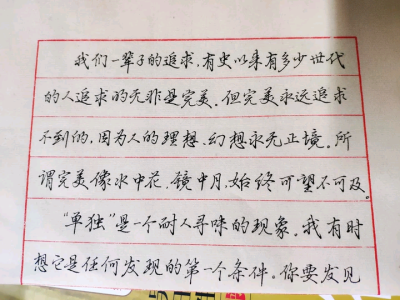 我们一辈子的追求，有史以来有多少世代
的人追求的无非是完美。但完美永远追求
不到的，因为人的理想、幻想永无止境。所
谓完美像水中花、镜中月，始终可望不可及。
“单独”是一个耐人寻味的现象。我有时
想它是任何发现的第一个条件。你要发见